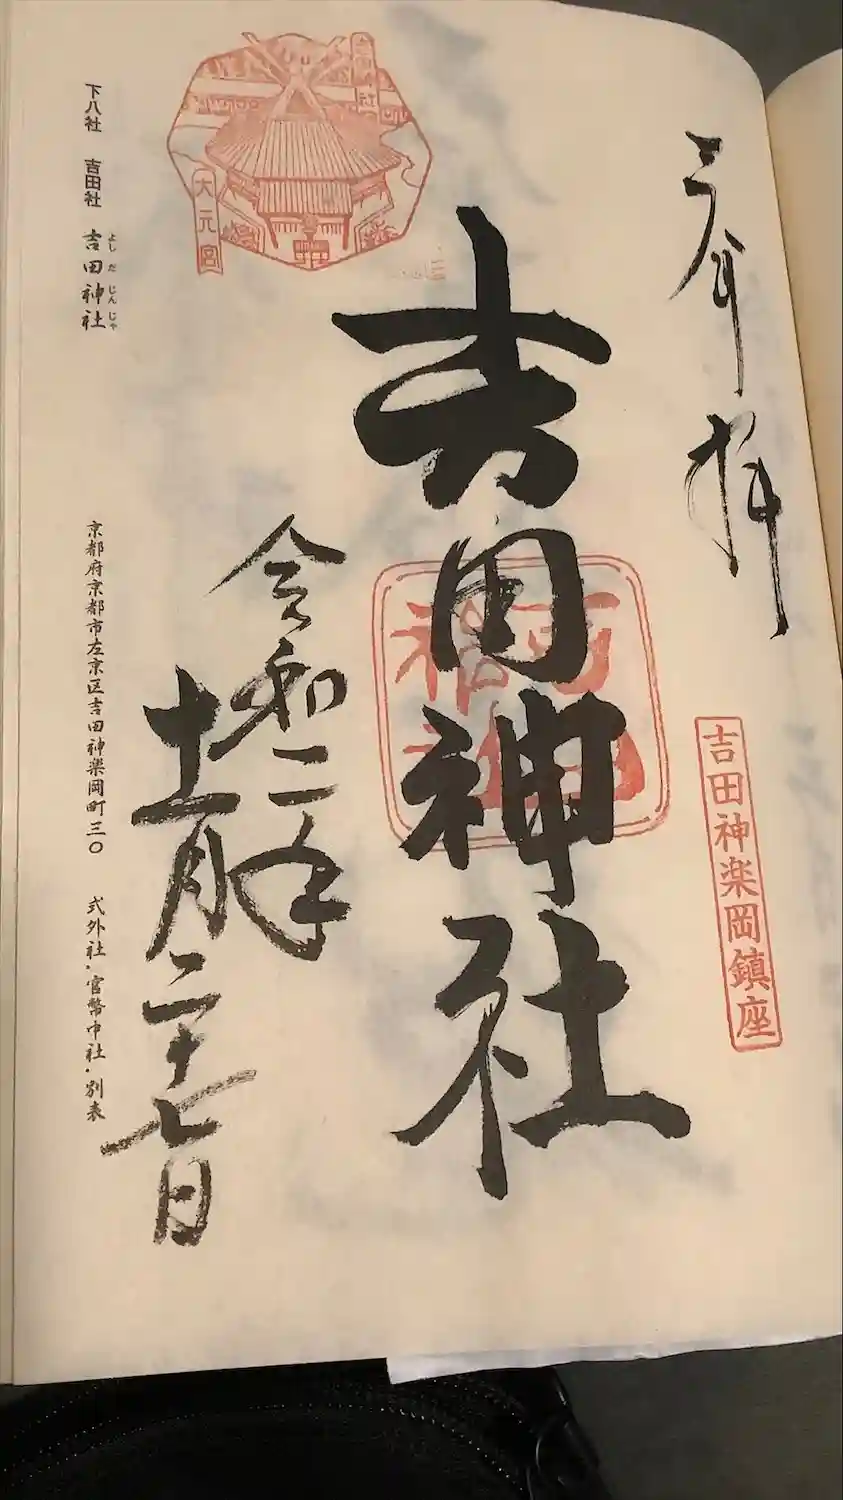 奉拝
吉田神楽岡鎮座
吉田神社
令和二年
十一月二十七日
大元宮
よしだじんじゃ
下八社 吉田社 吉田神社
京都府京都市左京区吉田神楽岡町三〇 式外社・官幣中社・別表